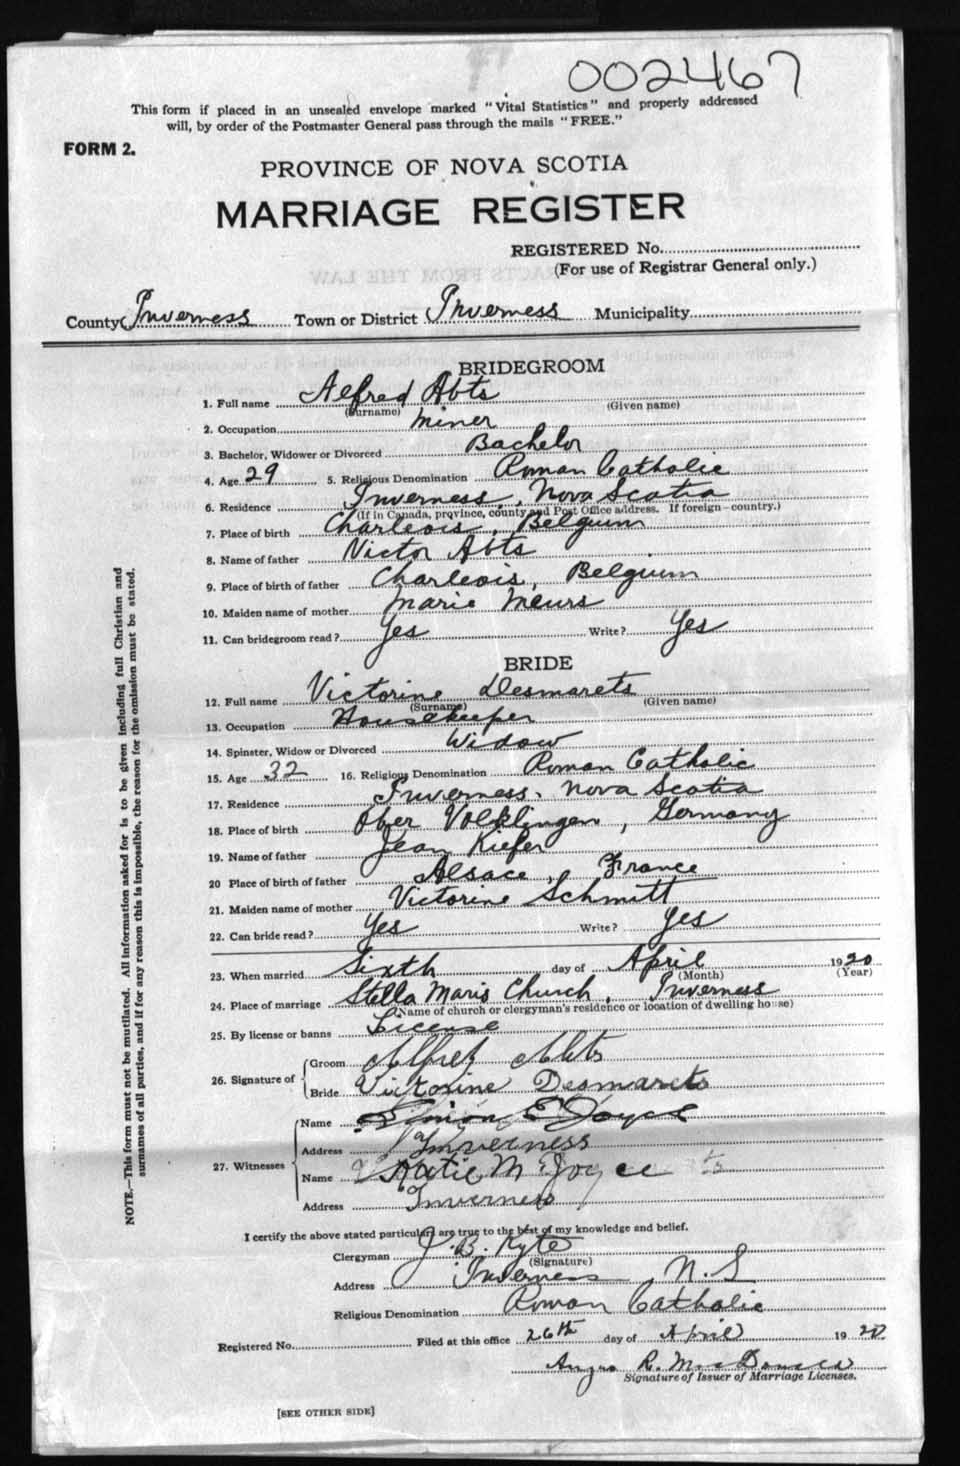 002467
This form if placed in an unsealed envelope marked "Vital Statistics" and properly addressed
will, by order of the Postmaster General pass through the mails "FREE."
FORM 2.
PROVINCE OF NOVA SCOTIA
MARRIAGE REGISTER
REGISTERED No.
(For use of Registrar General only.)
County Inverness Town or District Inverness Municipality
BRIDEGROOM
1. Full name Alfred Abts
(Surname) (Given name)
2. Occupation Miner
3. Bachelor, Widower or Divorced Bachelor
4. Age 29 5. Religious Denomination Roman Catholic
6. Residence Inverness, Nova Scotia
(If in Canada, province, county and Post Office address. If foreign—country.)
7. Place of birth Charleois, Belgium
8. Name of father Victor Abts
9. Place of birth of father Charleois, Belguim
10. Maiden name of mother Marie Meurs
11. Can bridegroom read? Yes Write? Yes
BRIDE
12. Full name Victorine Desmarets
(Surname) (Given name)
13. Occupation Housekeeper
14. Spinster, Widow or Divorced Widow
15. Age 32 16. Religious Denomination Roman Catholic
17. Residence Inverness, Nova Scotia
18. Place of birth Ober Volklingen, Germany
19. Name of father Jean Kiefer
20 Place of birth of father Alsace, France
21. Maiden name of mother Victorine Schmitt
22. Can bride read? Yes Write? Yes
23. When married Sixth day of April 1920
(Month) (Year)
24. Place of marriage Stella Maris Church, Inverness
(Name of church or clergyman's residence or location of dwelling house)
25. By license or banns License
26. Signature of Groom Alfred Abts
Bride Victorine Desmarets
27. Witnesses Name Simon E Joyce
Address Inverness
Name Katie M Joyce
Address Inverness
I certify the above stated particulars are true to the best of my knowledge and belief.
Clergyman J. B. Kyte
(Signature)
Address Inverness, N.S
Religious Denomination Roman Catholic
Registered No. Filed at this office 26th day of April 1920
Angus R. MacDonald
Signature of Issuer of Marriage Licenses.
[SEE OTHER SIDE]
NOTE.—This form must not be mutilated. All information asked for is to be given including full Christian and
surnames of all parties, and if for any reason this is impossible, the reason for the omission must be stated.